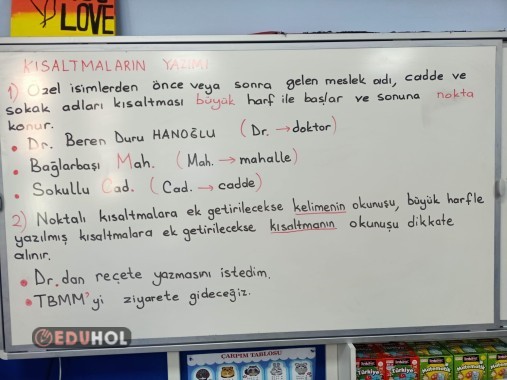 LOVE
KISALTMALARIN YAZIMI
1) Özel isimlerden önce veya sonra gelen meslek adı, cadde ve
sokak adları kısaltması büyük harf ile başlar ve sonuna nokta
konur.
• Dr. Beren Duru HANOĞLU (Dr. → doktor)
• Bağlarbaşı Mah. (Mah. → mahalle)
• Sokullu Cad. (Cad. → cadde)
2) Noktalı kısaltmalara ek getirilecekse kelimenin okunuşu, büyük harfle
yazılmış kısaltmalara ek getirilecekse kısaltmanın okunuşu dikkate
alınır.
• Dr.dan reçete yazmasını istedim.
• TBMM'yi ziyarete gideceğiz.
EDUHOL
ÇARPIM TABLOSU
Türkiye
Matematik
Türkiye
Matematik